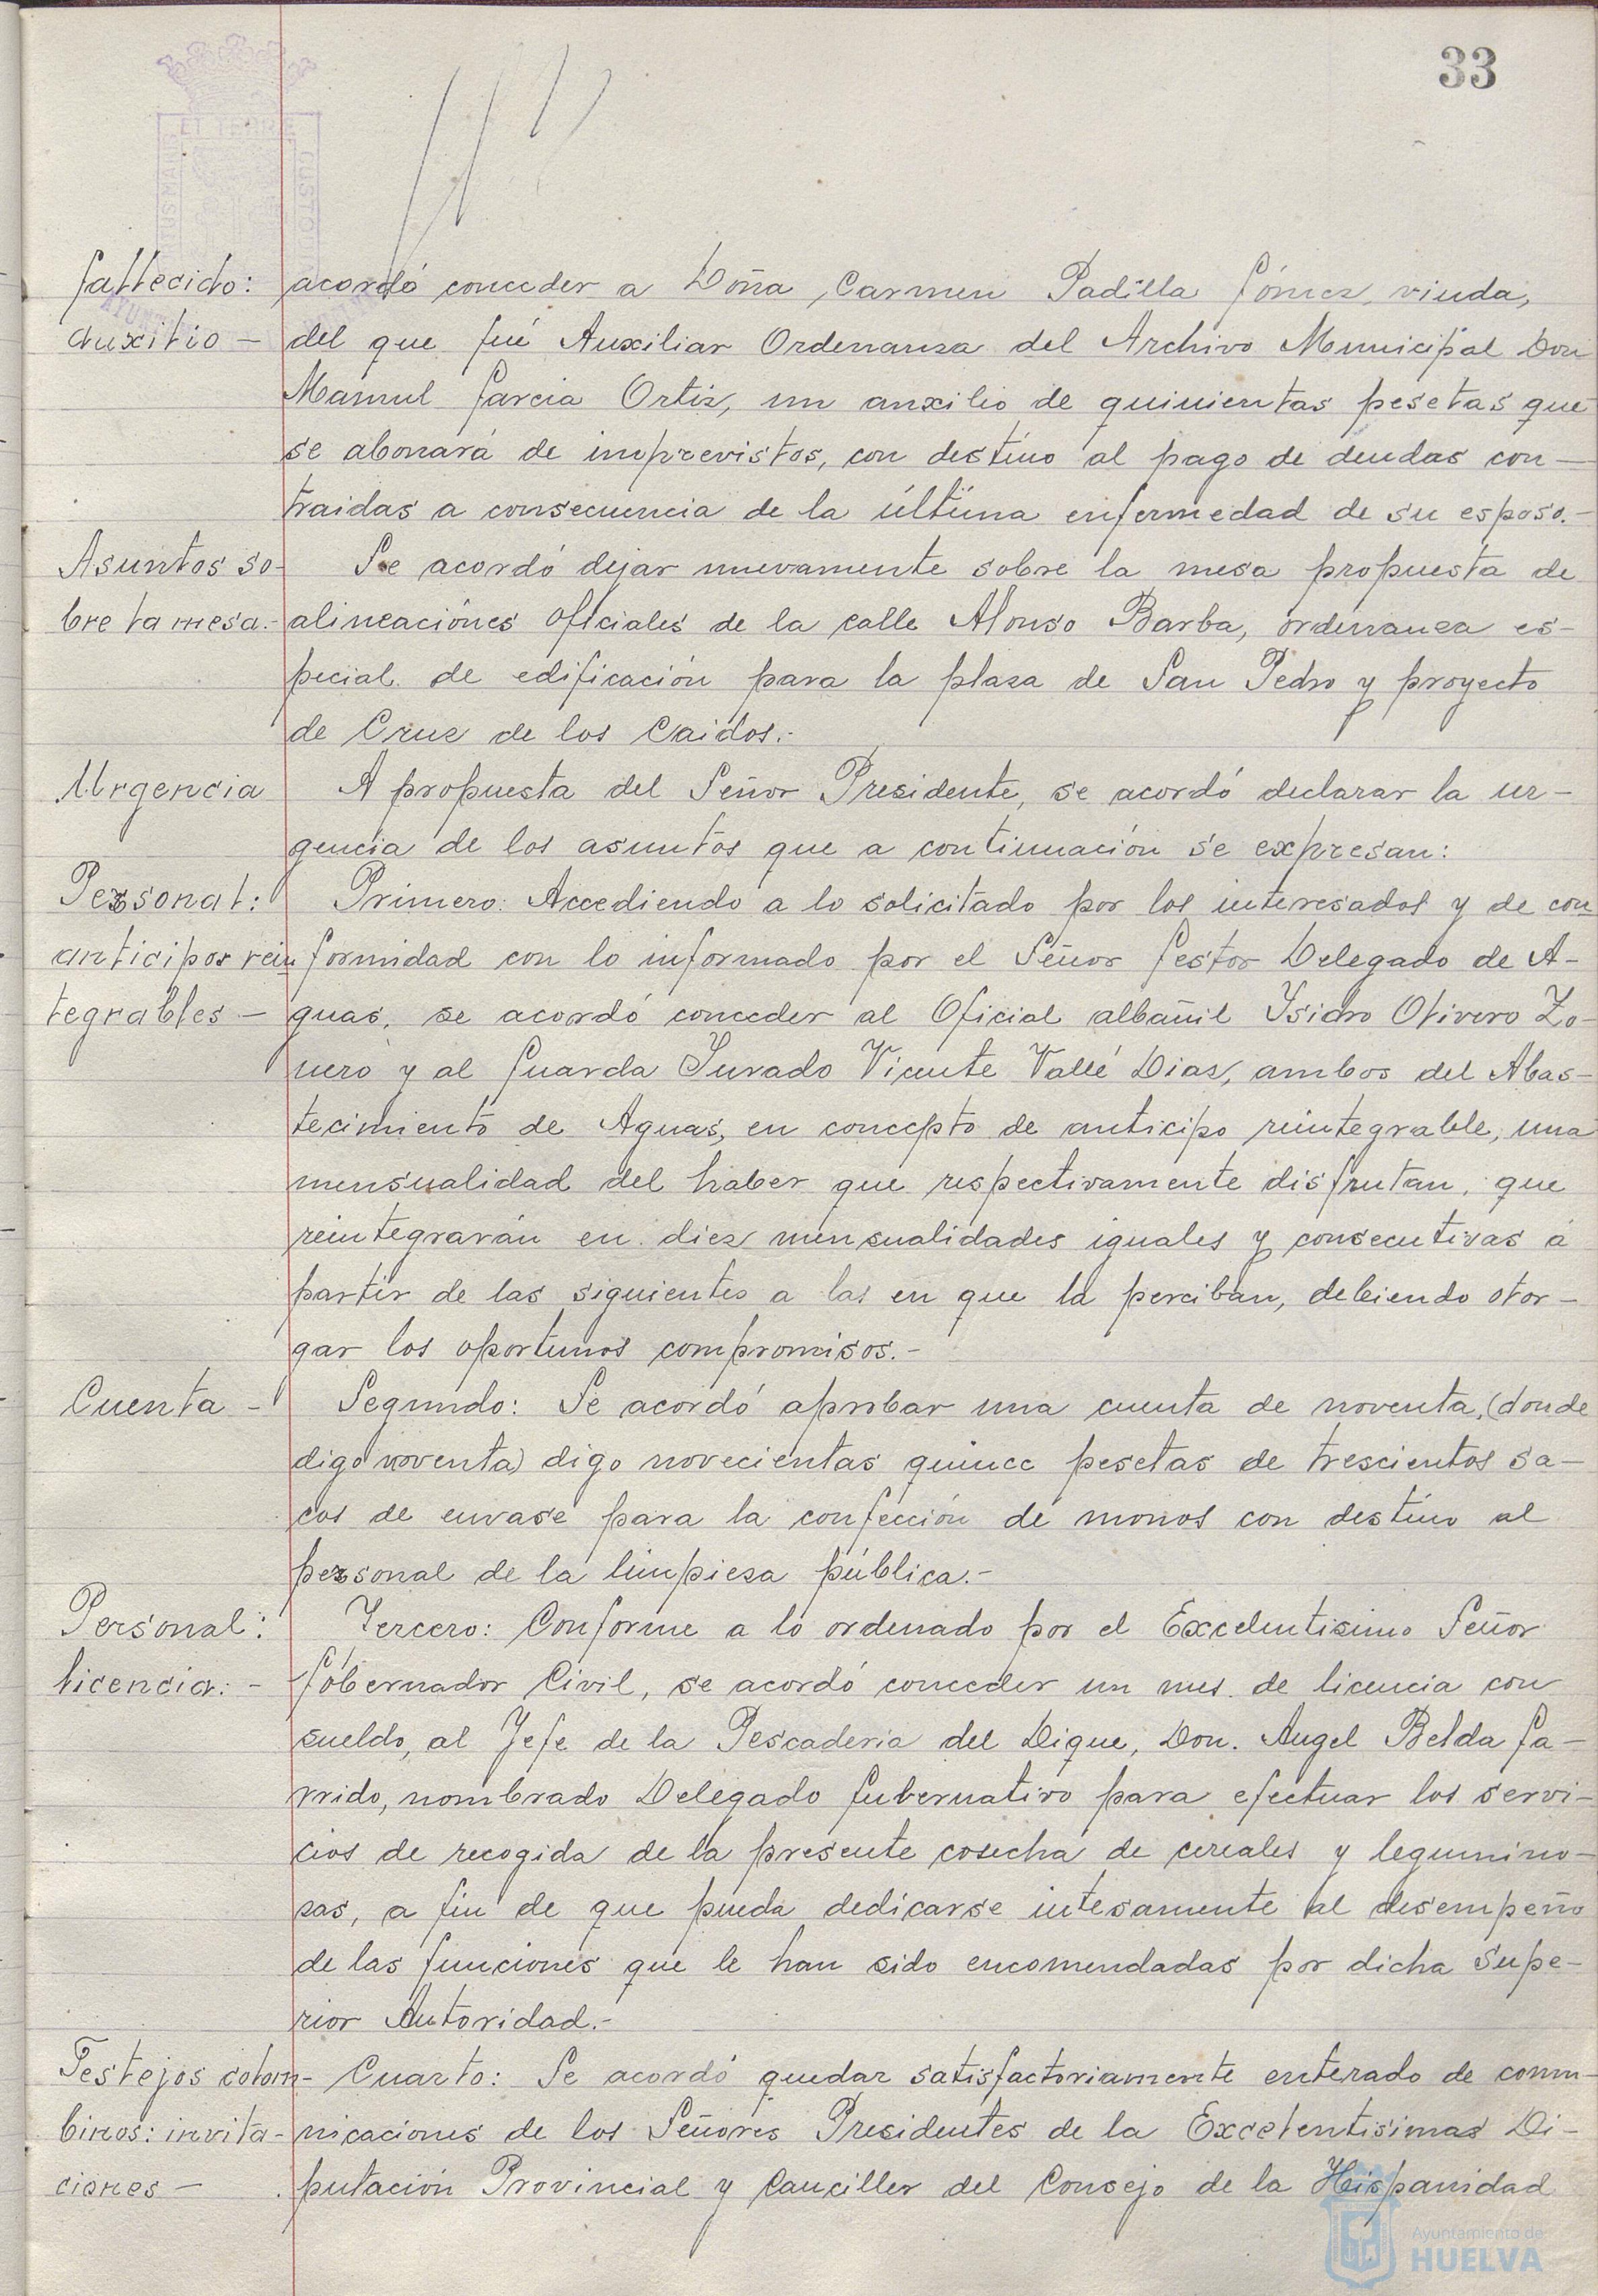 33
fallecido: acordó conceder a Doña Carmen Padilla Gómez, viuda,
auxilio - del que fué Auxiliar Ordenanza del Archivo Municipal Don
Manuel Garcia Ortiz, un auxilio de quinientas pesetas que
se abonará de imprevistos, con destino al pago de deudas con-
traidas a consecuencia de la última enfermedad de su esposo.-
Asuntos so- Se acordó dejar nuevamente sobre la mesa propuesta de
bre la mesa.- alineaciónes oficiales de la calle Alonso Barba, ordenanza es-
pecial de edificación para la plaza de San Pedro y proyecto
de Cruz de los Caidos.-
Urgencia A propuesta del Señor Presidente, se acordó declarar la ur-
gencia de los asuntos que a continuación se expresan:
Personal: Primero: Accediendo a lo solicitado por los interesados y de con
anticipos rein formidad con lo informado por el Señor Gestor Delegado de A-
tegrables - guas, se acordó conceder al Oficial albañil Ysidro Olivero Zo-
nero y al Guarda Jurado Vicente Vallé Dias, ambos del Abas-
tecimiento de Aguas, en concepto de anticipo reintegrable, una
mensualidad del haber que respectivamente disfrutan, que
reintegrarán en diez mensualidades iguales y consecutivas á
partir de las siguientes a las en que la perciban, debiendo otor-
gar los oportunos compromisos.-
Cuenta - Segundo: Se acordó aprobar una cuenta de noventa, (donde
digo noventa) digo novecientas quince pesetas de trescientos sa-
cos de envase para la confección de monos con destino al
personal de la limpieza pública.-
Personal: Tercero: Conforme a lo ordenado por el Excelentisimo Señor
licencia: - Góbernador Civil, se acordó conceder un mes de licencia con
sueldo, al Jefe de la Pescaderia del Dique, Don. Angel Belda Ga-
rrido, nombrado Delegado Gubernativo para efectuar los servi-
cios de recogida de la presente cosecha de cereales y legumino-
sas, a fin de que pueda dedicarse intesamente al desempeño
de las funciones que le han sido encomendadas por dicha Supe-
rior Autoridad.-
Festejos colom- Cuarto: Se acordó quedar satisfactoriamente enterado de comu-
binos: invita- nicaciones de los Señores Presidentes de la Excelentisimas Di-
ciones - putación Provincial y Canciller del Consejo de la Hispanidad
Ayuntamiento de
HUELVA